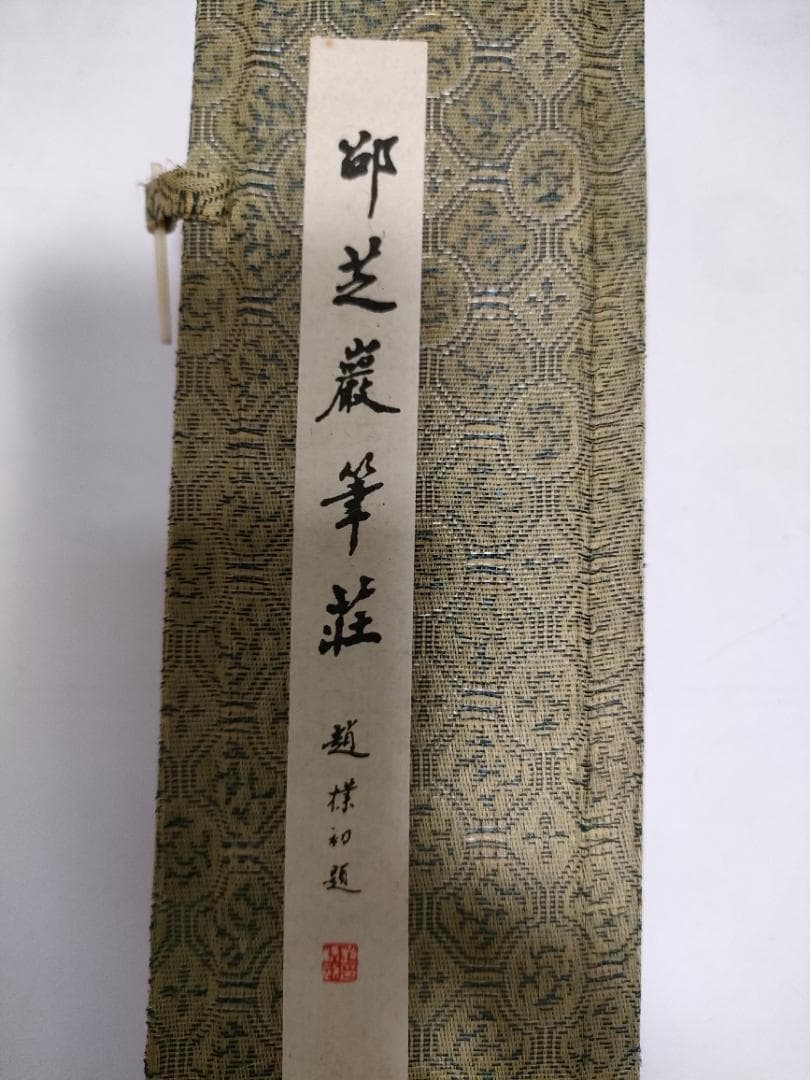 邵芝巖筆莊
趙樸初題